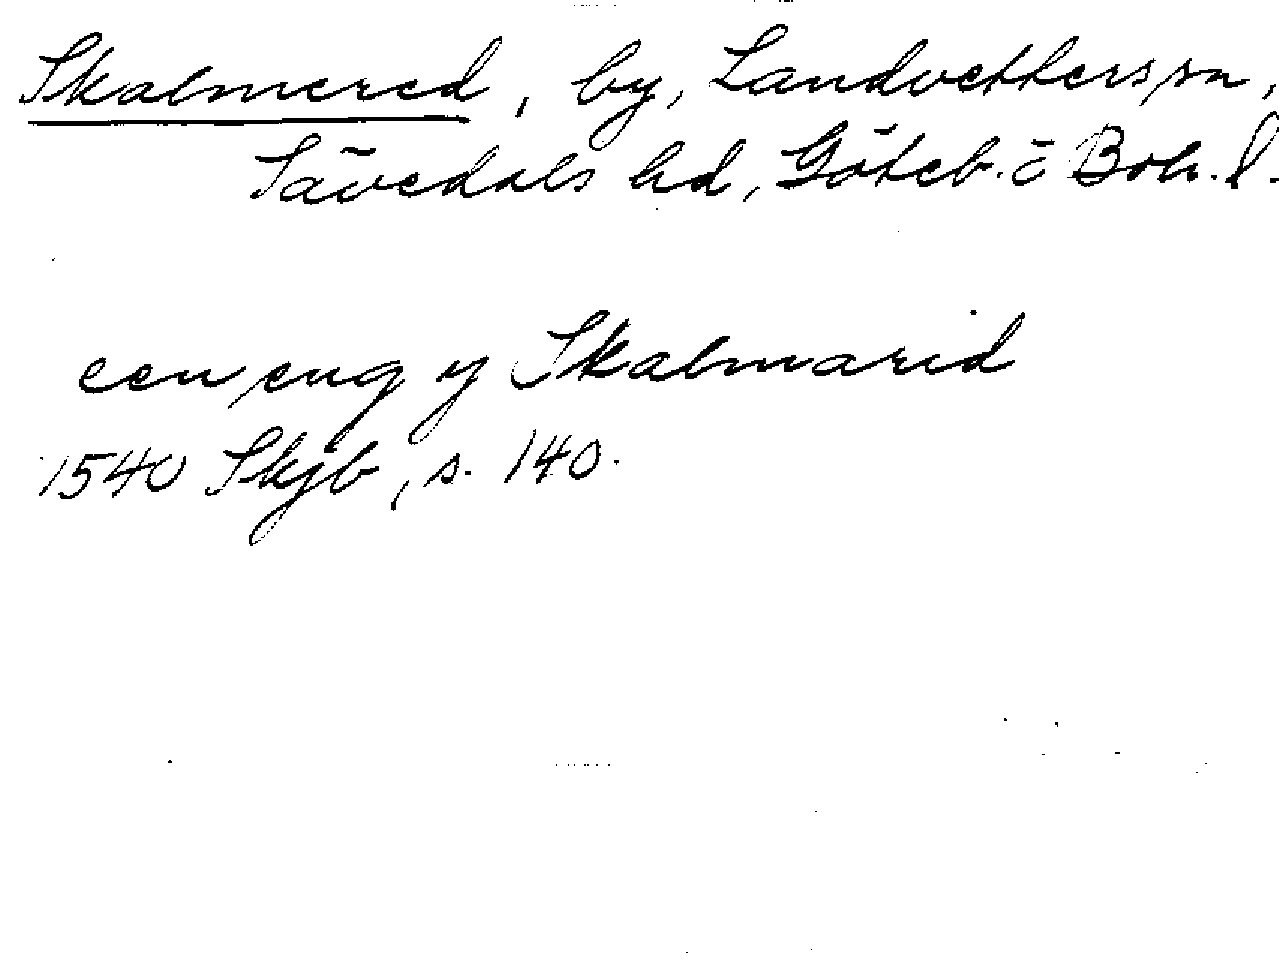 Skalmered, by, Landvetters sn,
Sävedals hd, Göteb. o Boh. l.
een eng y Skalmarid
1540 Skjb, s. 140.